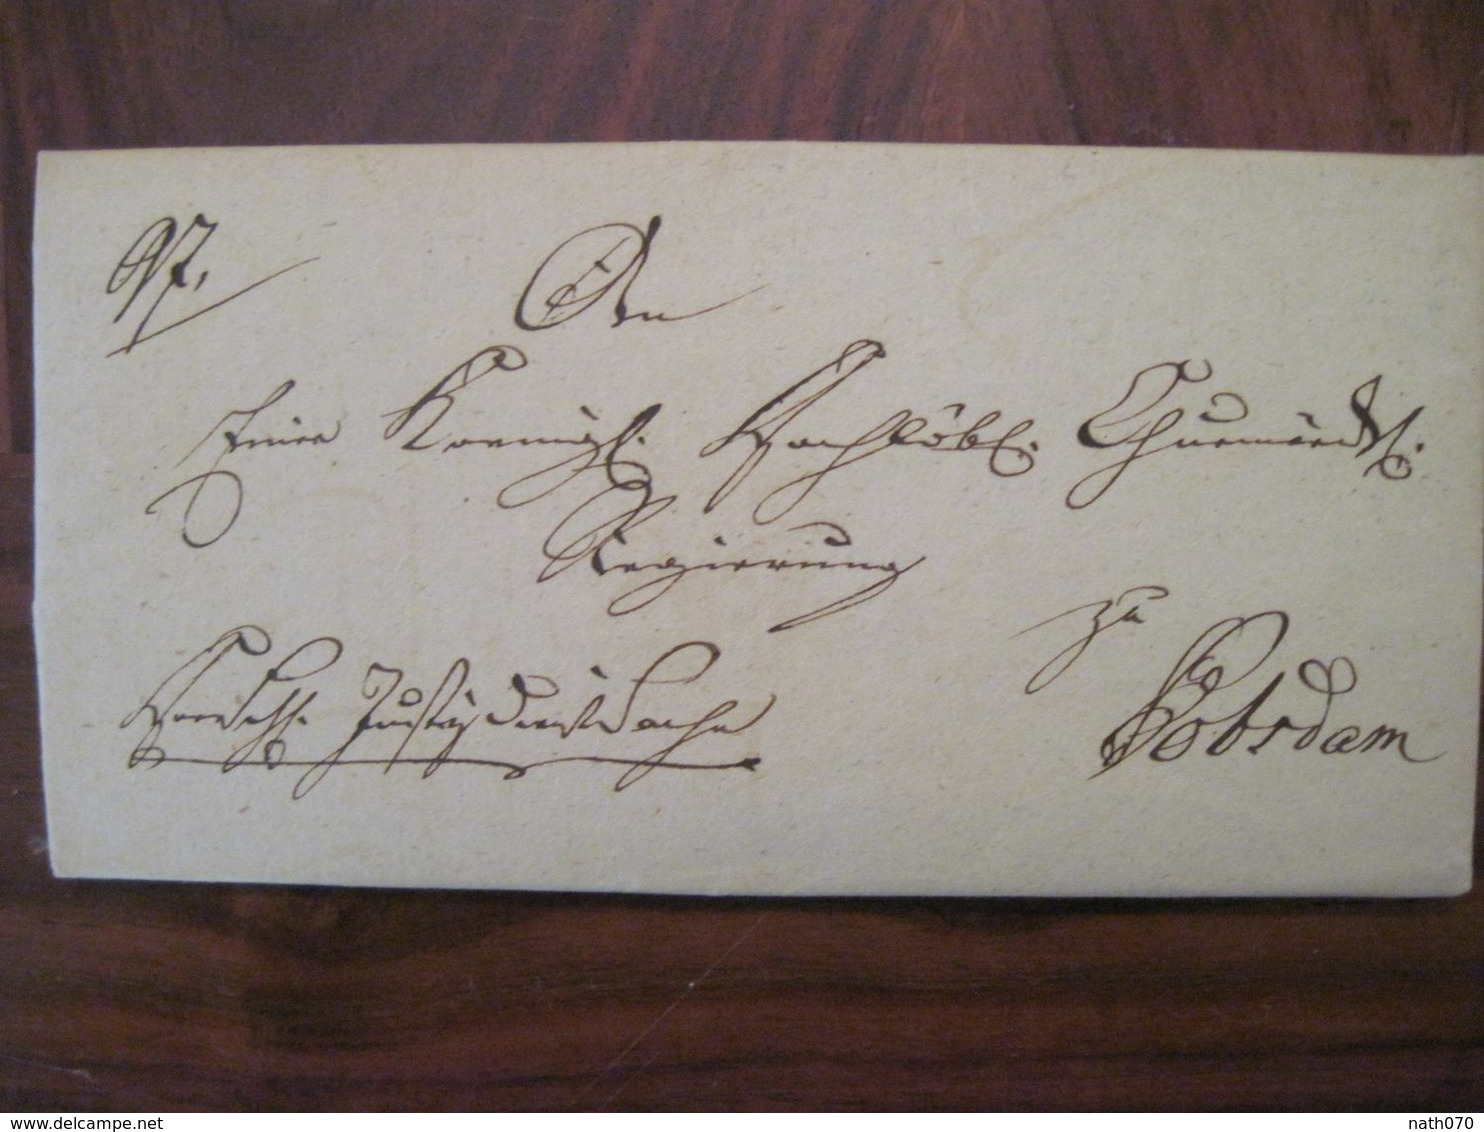 An
Einer Koenigl. Hochlöbl. Churmärcksl.
Regierung
zu
Potsdam
Herrschl. Justiz Dienst Sache
delcampe.net
nath070